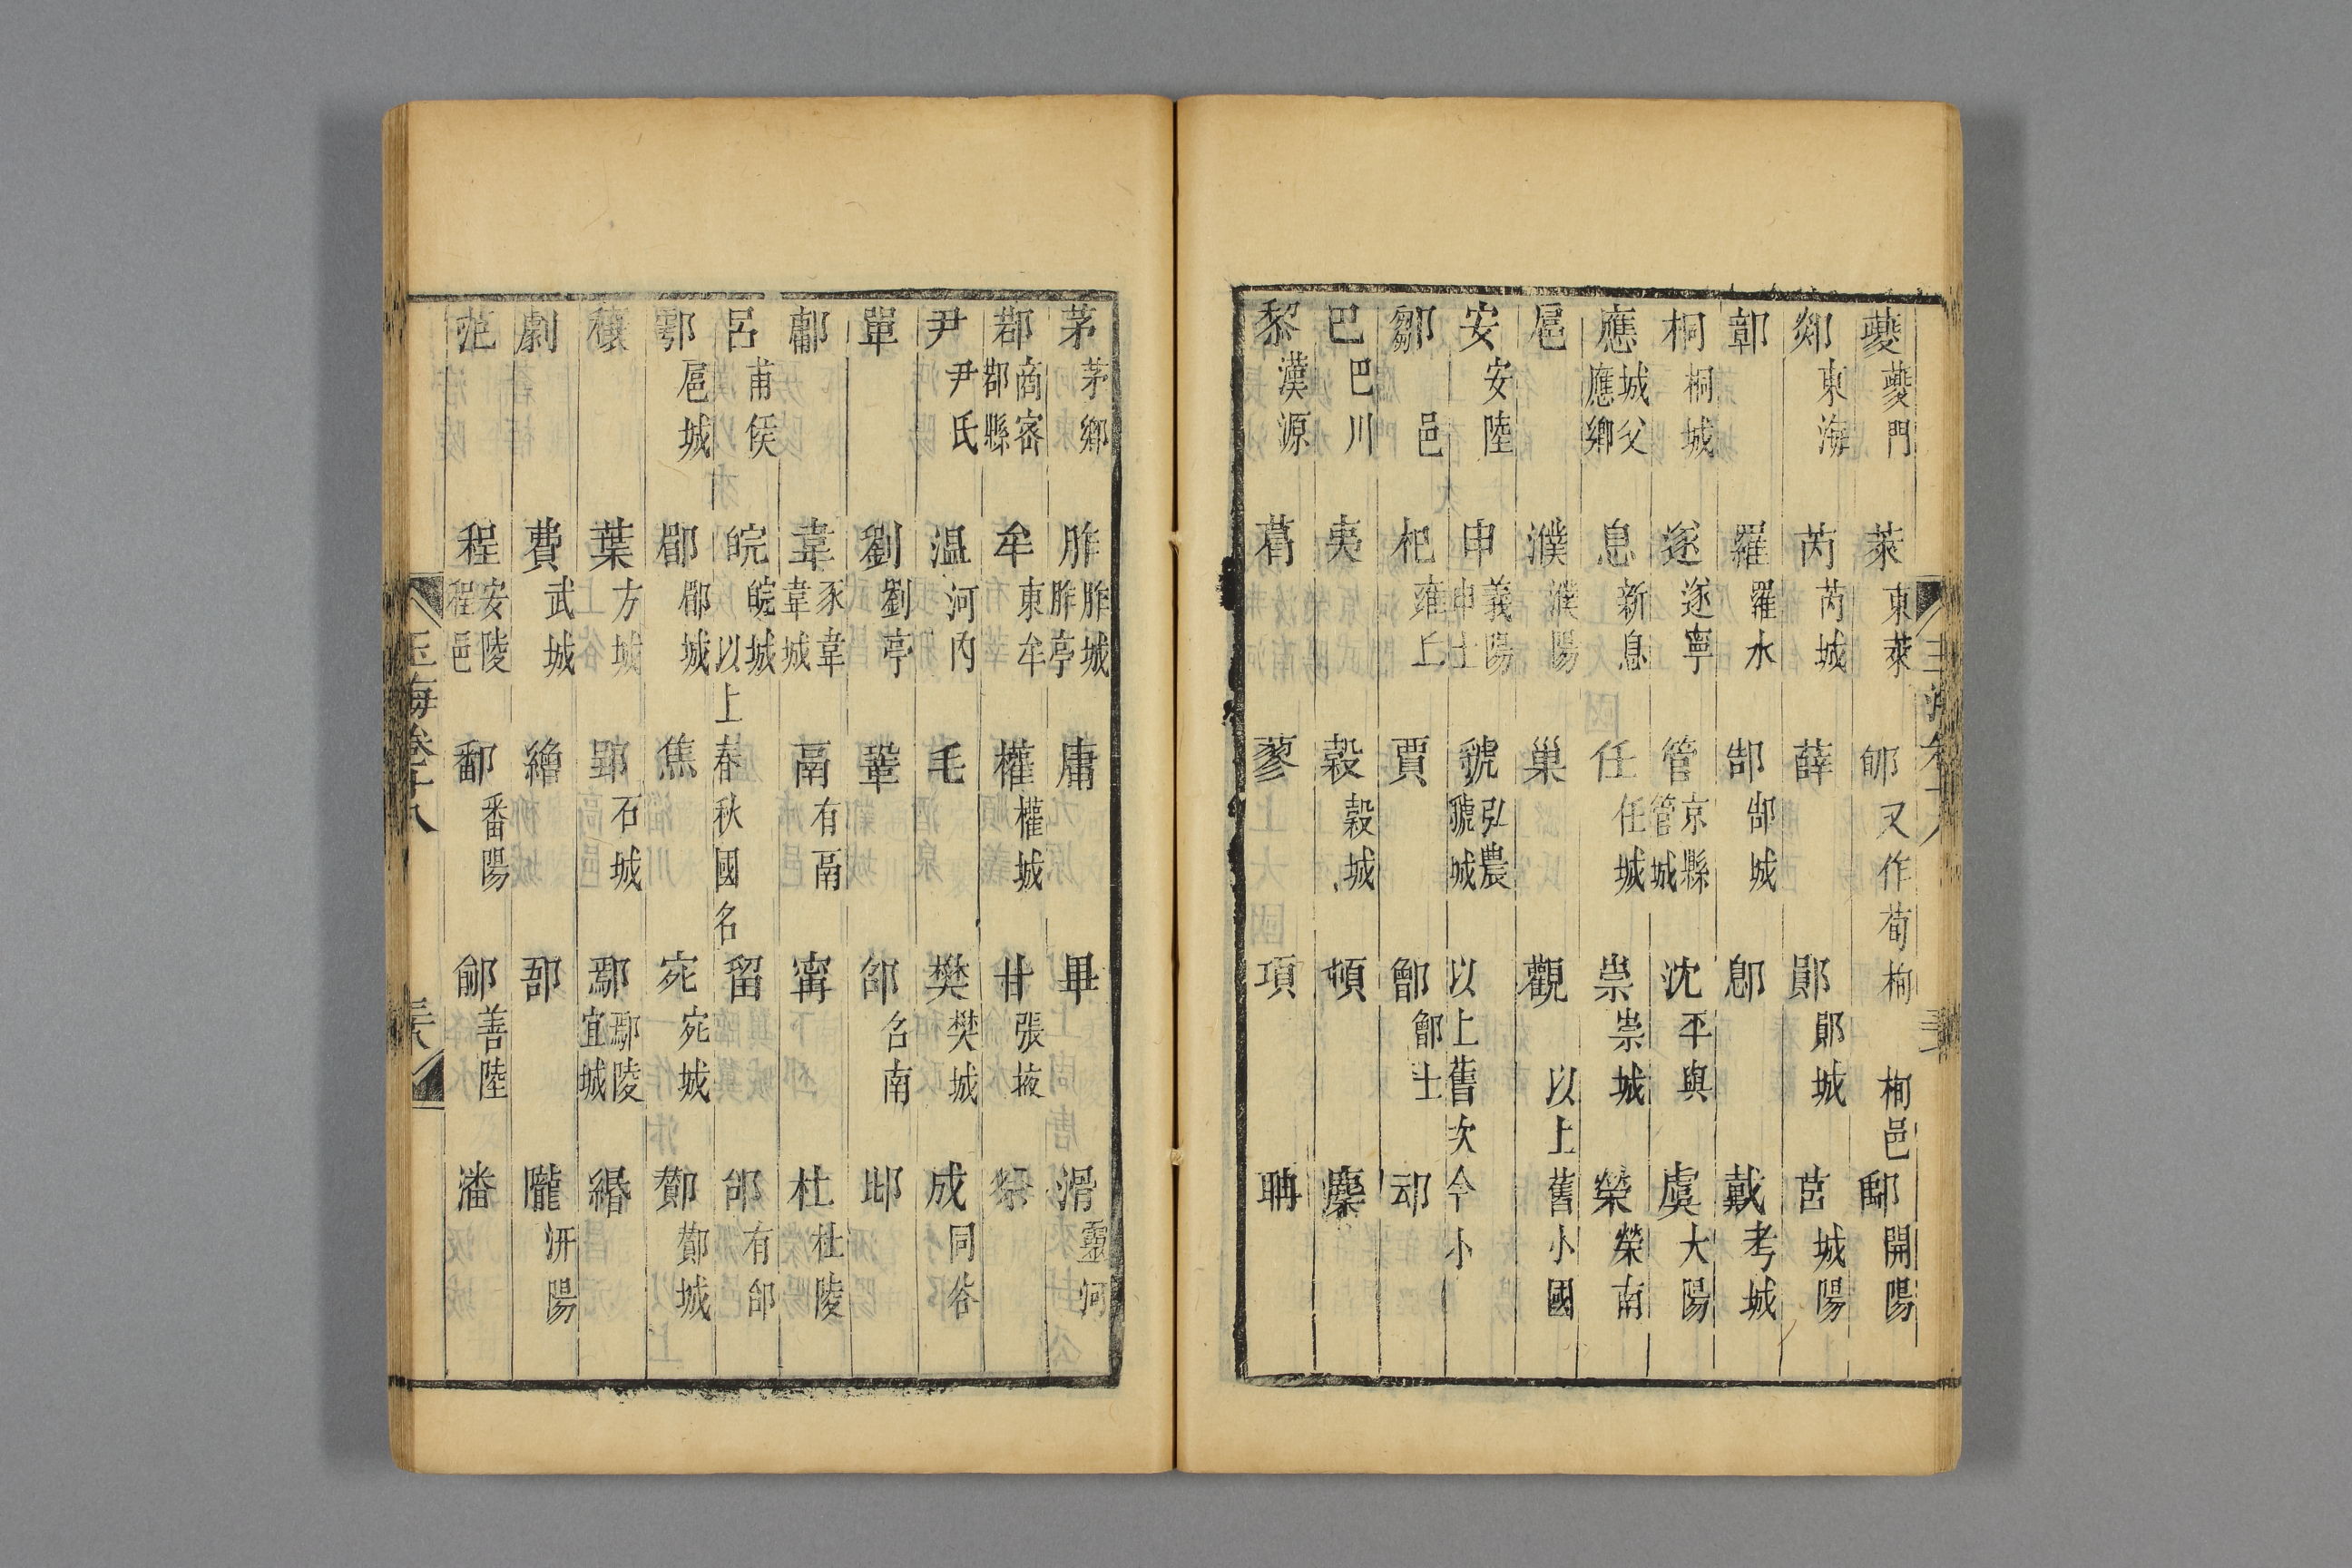 夔夔門 萊東萊 郇又作荀栒栒邑 鄅開陽
郯東海 芮芮城 薛 鄖鄖城 莒城陽
鄣 羅羅水 郜郜城 郎 戴考城
桐桐城 遂遂寧 管京縣管城 沈平輿 虞大陽
應城父應鄉 息新息 任任城 崇崇城 榮榮南
扈 濮濮陽 巢 觀 以上舊小國
安安陸 申義陽申士 虢弘農虢城 以上舊次今小
鄒邑 杞雍丘 賈 鄫鄫士
巴巴川 夷 穀穀城 頓 麋
黎漢源 葛 蓼 項 聃
玉海卷十八
茅茅鄉 胙胙城胙亭 庸 畢 滑靈河
鄀商密鄀縣 牟東牟 權權城 甘張掖
尹尹氏 温河內 毛 樊樊城 成同谷
單 劉劉亭 鞏 郤名南 邶
鄘 韋豕韋韋城 鬲有鬲 甯 杜杜陵
呂甫侯 皖皖城 以上春秋國名 留 郃有郃
鄠扈城 鄳鄳城 焦 宛宛城 酇酇城
穰 葉方城 郢石城 鄢鄢陵宜城 緡
劇 費武城 繒 郚 隴汧陽
范 程安陵程邑 鄱番陽 鄃善陸 潘
玉海卷十八